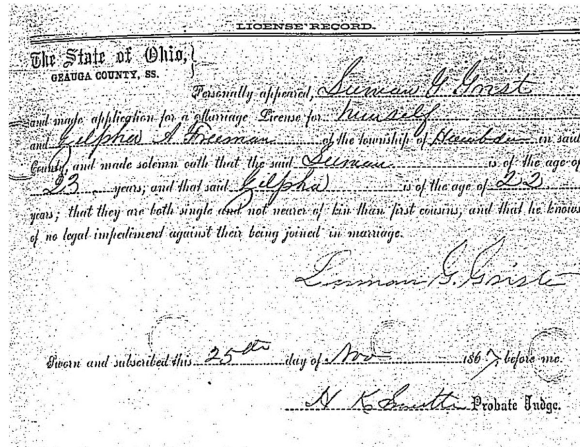 LICENSE RECORD.
The State of Ohio,
GEAUGA COUNTY, SS.
Personally appeared, Luman G. Grist
and made application for a Marriage License for himself
and Zilpha A Freeman of the township of Hambden in said
County, and made solemn oath that the said Luman is of the age of
23 years; and that said Zilpha is of the age of 22
years; that they are both single and not nearer of kin than first cousins, and that he knows
of no legal impediment against their being joined in marriage.
Luman G. Grist
Sworn and subscribed this 25th day of Nov 1867 before me.
H K Smith Probate Judge.